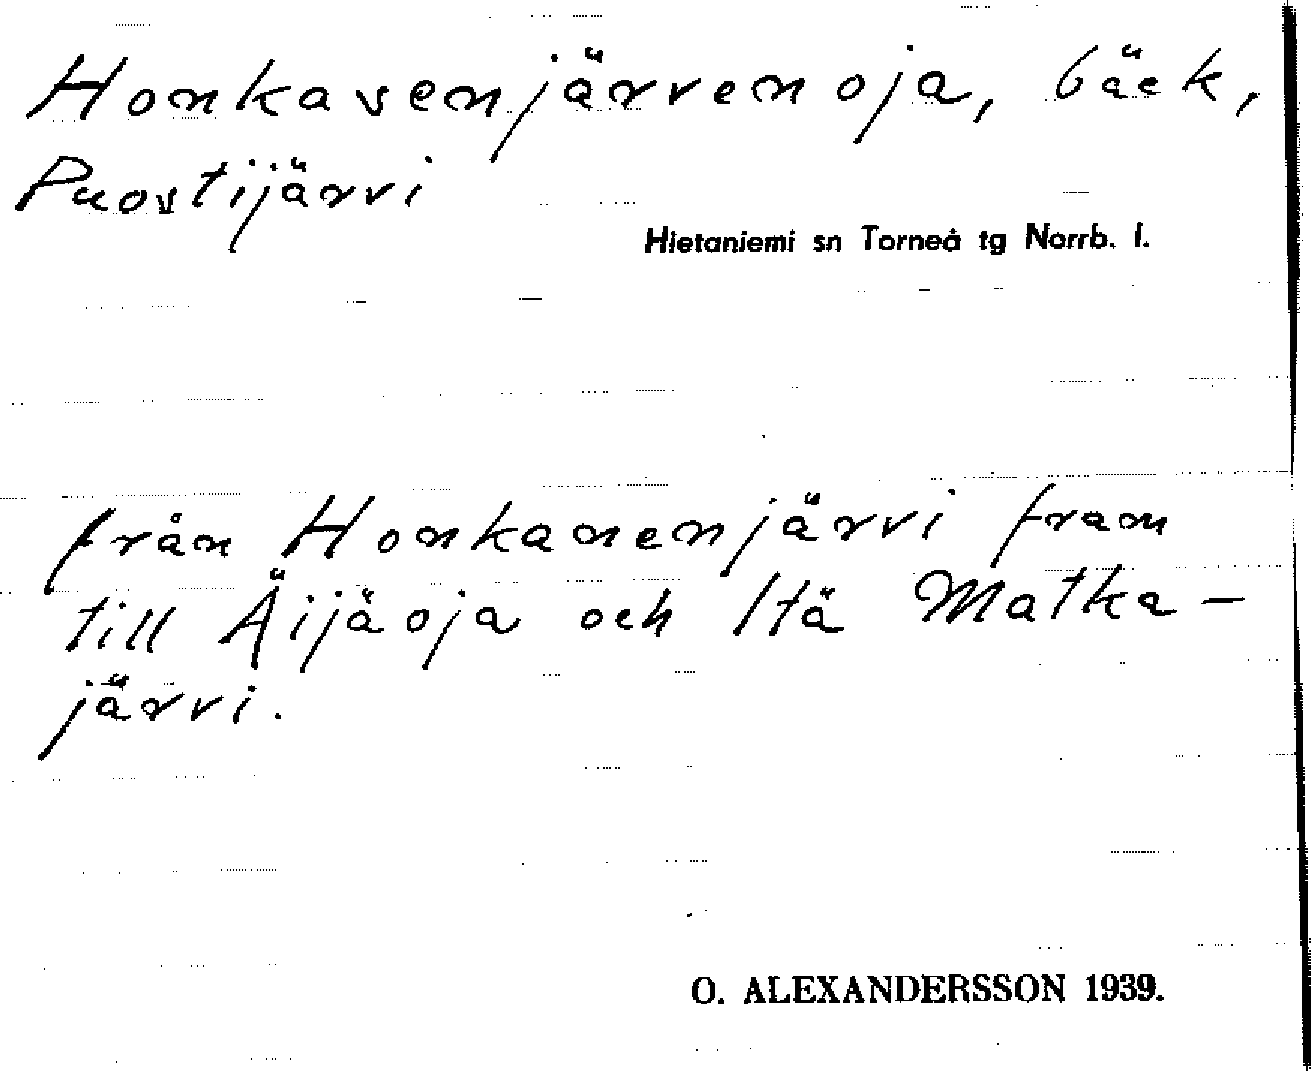 Honkasenjärvenoja, bäck,
Puostijärvi
Hietaniemi sn Torneå tg Norrb. l.
från Honkanenjärvi fram
till Äijäoja och Itä Matka-
järvi.
O. ALEXANDERSSON 1939.